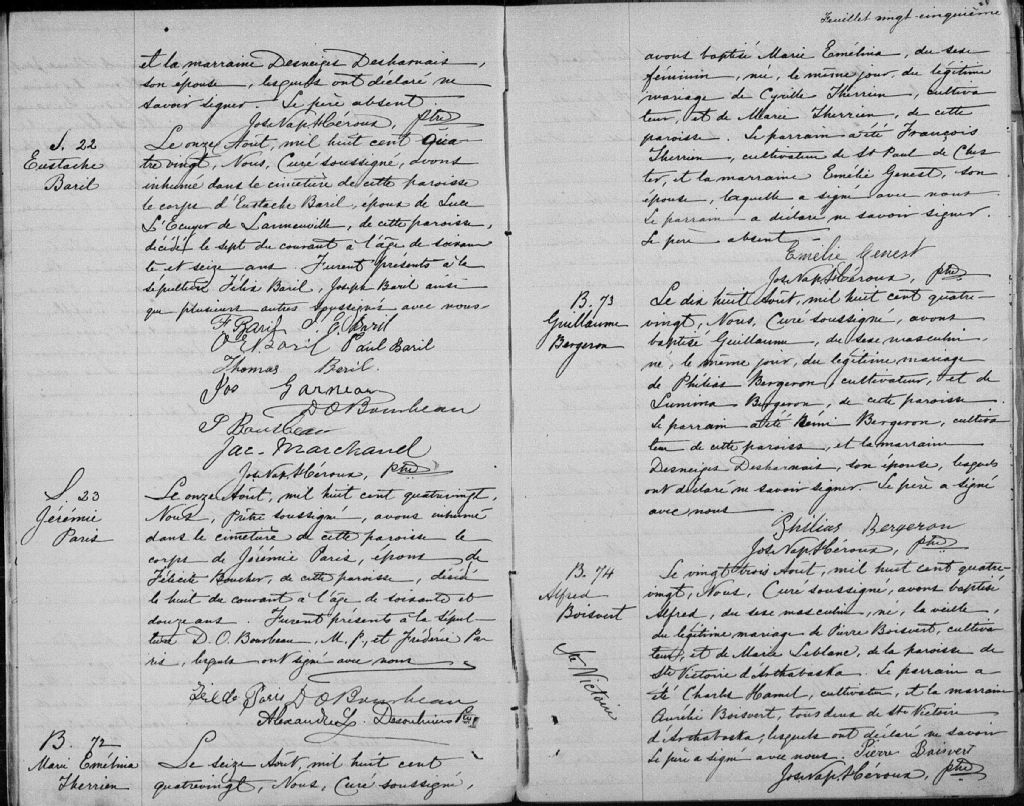 et la marraine Desneiges Desharnais,
son épouse, lesquels ont déclaré ne
savoir signer. Le père absent.
Jos Nap. Héroux, Ptre
S. 22
Eustache
Baril
Le onze Août, mil huit cent qua-
tre vingt, Nous, Curé soussigné, avons
inhumé dans le cimetière de cette paroisse
le corps d'Eustache Baril, époux de Luce
L'Ecuyer de Lanneuville, de cette paroisse,
décédé le sept du courant à l'âge de soixan
te et seize ans. Furent présents à la
sépulture Félix Baril, Joseph Baril ainsi
que plusieurs autres soussignés avec nous.
F. Baril J. E. Baril
N. Baril Paul Baril
Thomas Beril.
Jos Garneau
D O Bourbeau
P Bourbeau
Jac. Marchand
Jos Nap. Héroux, Ptre
S. 23
Jérémie
Paris
Le onze Août, mil huit cent quatrevingt,
Nous, Prêtre soussigné, avons inhumé
dans le cimetière de cette paroisse le
corps de Jérémie Paris, époux de
Félicité Boucher, de cette paroisse, décédé
le huit du courant à l'âge de soixante et
douze ans. Furent présents à la sépul-
ture D. O. Bourbeau, M. P., et Fréderic Pa-
ris, lesquels ont signé avec nous
Paris D O Bourbeau
Alexandre Desaulniers Ptre
B. 72
Marie Emélina
Therrien
Le seize Août, mil huit cent
quatrevingt, Nous, Curé soussigné,
Feuillet vingt-cinquième
avons baptisé Marie Emélina, du sexe
féminin, née, le même jour, du légitime
mariage de Cyrille Therrien, cultiva
teur, et de Marie Therrien, de cette
paroisse. Le parrain a été François
Therrien, cultivateur de St Paul de Ches
ter, et la marraine Emélie Genest, son
épouse, laquelle a signé avec nous.
Le parrain a déclaré ne savoir signer.
Le père absent
Emélie Genest
Jos Nap. Héroux, Ptre
B. 73
Guillaume
Bergeron
Le dix huit Août, mil huit cent quatre-
vingt, Nous, Curé soussigné, avons
baptisé Guillaume, du sexe masculin,
né, le même jour, du légitime mariage
de Philias Bergeron, cultivateur, et de
Lumina Bergeron, de cette paroisse.
Le parrain a été Rémi Bergeron, cultiva
teur de cette paroisse, et la marraine
Desneiges Desharnais, son épouse, lesquels
ont déclaré ne savoir signer. Le père a signé
avec nous
Philias Bergeron
Jos Nap. Héroux, Ptre
B. 74
Alfred
Boisvert
Ste Victoire
Le vingt trois Août, mil huit cent quatre-
vingt, Nous, Curé soussigné, avons baptisé
Alfred, du sexe masculin, né, la veille,
du légitime mariage de Pierre Boisvert, cultiva
teur, et de Marie Leblanc, de la paroisse de
Ste Victoire d'Arthabaska. Le parrain a
été Charles Hamel, cultivateur, et la marraine
Aurélie Boisvert, tous deux de Ste Victoire
d'Arthabaska, lesquels ont déclaré ne savoir
Le père a signé avec nous. Pierre Boisvert
Jos Nap. Héroux, Ptre